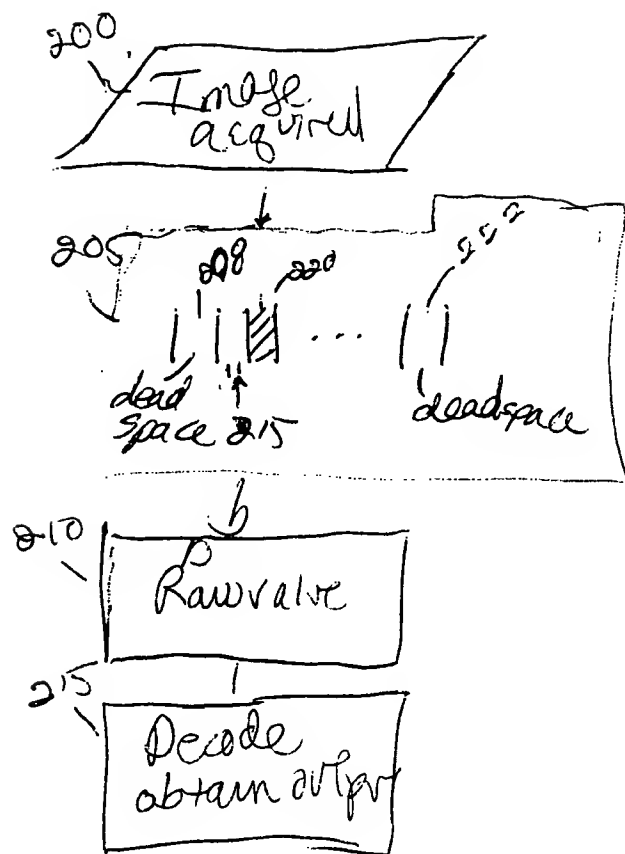 200
Image
acquired
205
208
220
222
dead
space 215
...
deadspace
210
Raw value
215
Decode
obtain output